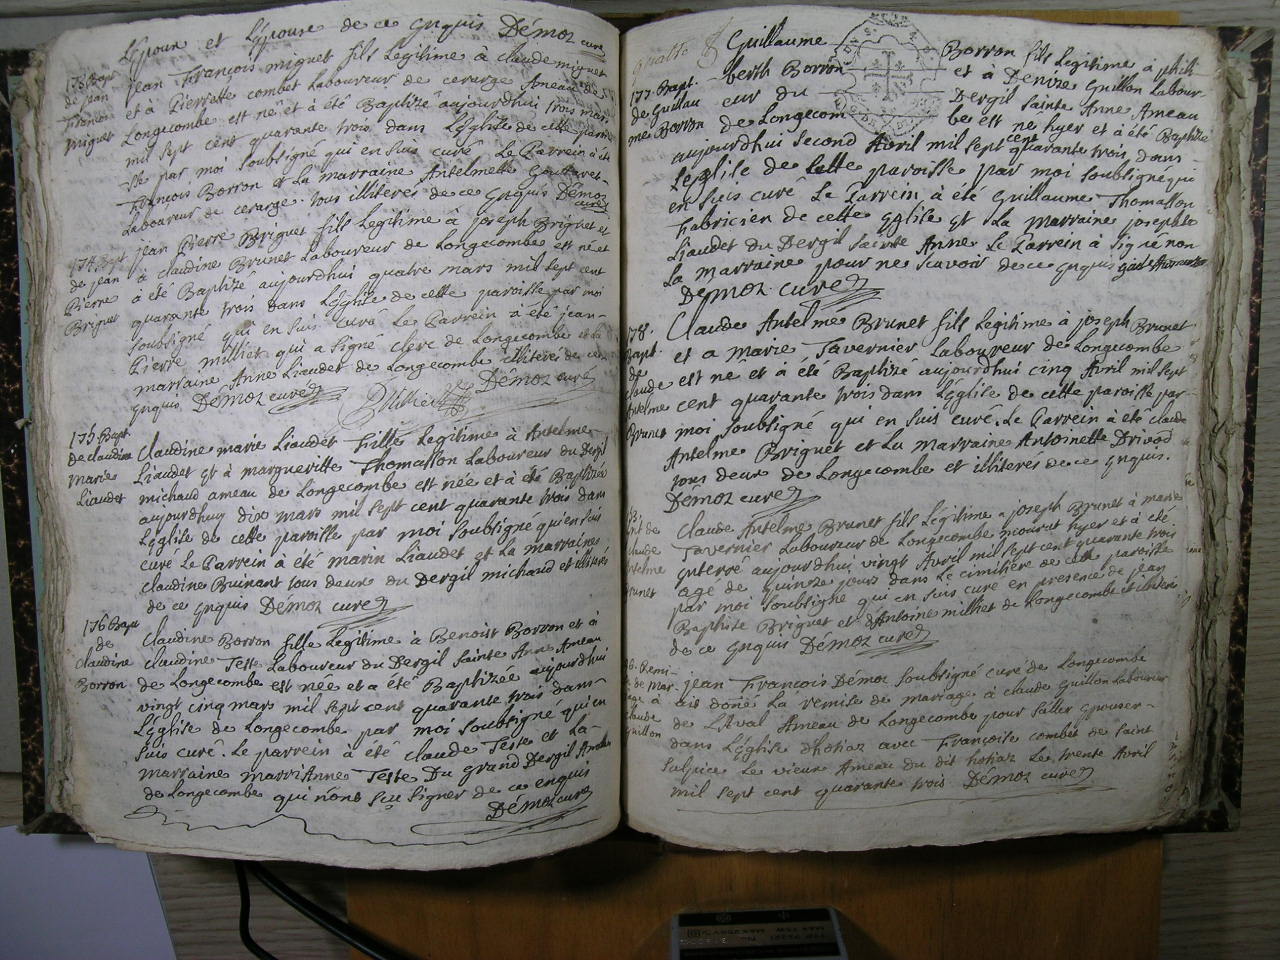 Lépoux et Lépouse de ce Enquis Démoz curé
173 Bapt.
de jean
françois
miguet
jean François miguet fils Legitime à claude miguet
et à Pierrette combet Laboureur de cerarge Ameau de
Longecombe est né et à été Baptizé aujourdhui trois mars
mil sept cent quarante trois dans Léglise de cette paroi
-sse par moi soubsigné qui en suis curé Le Parrein à été
François Borron et La marraine Antelmette
Laboureur de cerarge. tous illiterés de ce Enquis Démoz
curé
174 Bapt.
de jean
Pierre
Briguet
jean Pierre Briguet fils Legitime à joseph Briguet et
à claudine Brunet Laboureur de Longecombe est né et
à été Baptizé aujourdhui quatre mars mil sept cent
quarante trois dans Léglise de cette paroisse par moi
soubsigné qui en suis curé Le Parrein à été jean-
Pierre milliet qui a signé clerc de Longecombe et la
marraine Anne Liaudet de Longecombe illiterée de ce
Enquis Démoz curé Milliet Démoz curé
175 Bapt.
De claudine
marie
Liaudet
Claudine marie Liaudet Fille Legitime à Antelme
Liaudet Et à margueritte Thomasson Laboureur du Dergil
michaud ameau de Longecombe est née et à été Baptizée
aujourdhuy dix mars mil sept cent quarante trois dans
Léglise de cette paroisse par moi soubsigné qui en suis
curé Le Parrein à été marin Liaudet et La marraine
claudine Ruinant tous deux du Dergil michaud et illiterés
de ce Enquis Démoz curé
176 Bapt
de
claudine
Borron
Claudine Borron fille Legitime à Benoist Borron et à
claudine Teste Laboureur du Dergil Sainte Anne Ameau
de Longecombe est née et a été Baptizée aujourdhui
vingt cinq mars mil sept cent quarante trois dans
Léglise de Longecombe par moi soubsigné qui en
suis curé. Le parrein à été claude Teste et La-
marraine marri Anne Teste Du grand Dergil Ameau
de Longecombe qui n'ont sçu signer de ce enquis
Démoz curé
177. Bapt.
de Guillau
me Borron
Guillaume Borron fils Legitime à phili
berth Borron et à Denize Guillon Labour-
eur du Dergil Sainte Anne Ameau
de Longecombe est né hyer et à été Baptizé
aujourdhui second Avril mil sept cent quarante trois, dans
Léglise de cette paroisse par moi soubsigné qui
en suis curé Le Parrein à été Guillaume Thomasson
Fabricien de cette Eglise Et La Marraine josephte
Liaudet du Dergil Sainte Anne Le Parrein à signé non
La marraine pour ne scavoir de ce Enquis
Démoz curé
178.
Bapt.
de
claude
Antelme
Brunet
Claude Antelme Brunet fils Legitime à joseph Brunet
et a Marie Tavernier Laboureur de Longecombe
est né et à été Baptizé aujourdhui cinq Avril mil sept
cent quarante trois dans Léglise de cette paroisse par
moi soubsigné qui en suis curé. Le Parrein à été claude
Antelme Briguet et La marraine Antoinette Drivod
tous deux de Longecombe et illiterés de ce Enquis.
Démoz curé
claude
Antelme
Brunet
Claude Antelme Brunet fils Legitime a joseph Brunet à marie
Tavernier Laboureur de Longecombe mourut hyer et à été
Enterré aujourdhui vingt Avril mil sept cent quarante trois
age de quinze jours dans Le cimitière de cette paroisse
par moi soubsigné qui en suis curé en presence de jean
Baptiste Briguet et d'Antoine milliet de Longecombe et illiteré
de ce Enquis Démoz curé
Remi-
de mar-
claude
Guillon
jean François Démoz soubsigné curé de Longecombe
ais donés La remise de mariage à claude Guillon Laboureur
de LAval Ameau de Longecombe pour saller Epouser-
dans Léglise d'hotiaz avec Françoise combet de saint
sulpice Le vieux Ameau du dit hotiaz Le trente Avril
mil sept cent quarante trois Démoz curé